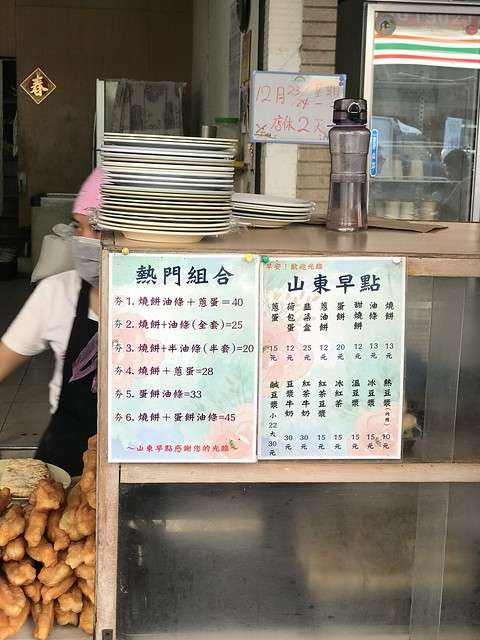 春
12月
店休2天
熱門組合
夯1. 燒餅油條＋蔥蛋＝40
夯2. 燒餅+油條(全套)=25
夯3. 燒餅+半油條(半套)=20
夯4. 燒餅＋蔥蛋=28
夯5. 蛋餅油條=33
夯6. 燒餅＋蛋餅油條=45
～山東早點感謝您的光臨～
早安！歡迎光臨
山東早點
燒餅 13元
油條 13元
甜燒餅 12元
蛋餅 20元
蔥油餅 12元
韭菜盒 25元
荷包蛋 12元
蔥蛋 15元
熱豆漿(內用) 10元
冰豆漿 15元
溫豆漿 15元
冰紅茶 15元
紅茶豆漿 15元
紅茶牛奶 30元
豆漿牛奶 30元
鹹豆漿 小22 大30元